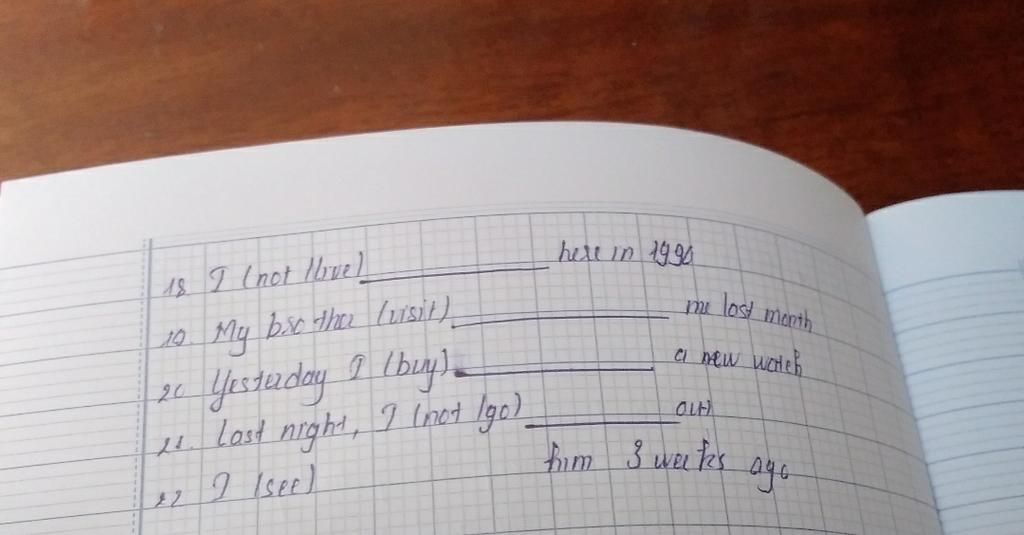 18 I (not /live) __________ here in 1990
19 My brother (visit) __________ me last month
20 Yesterday I (buy) __________ a new watch
21. Last night, I (not /go) ________ out
22 I (see) him 3 weeks ago